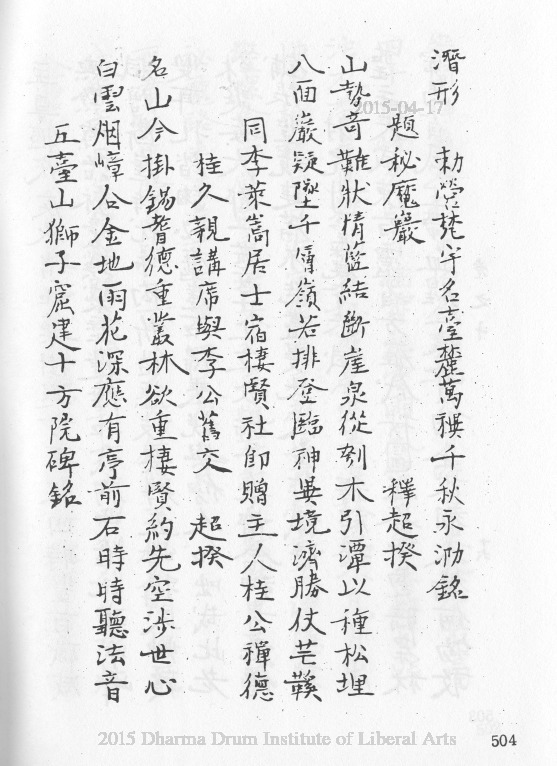 潛形　勅營梵宇名臺麓萬禩千秋永泐銘
題秘魔巖　釋超揆
山勢奇難狀情藍結斷崖泉從刳木引潭以種松埋
八面巖疑墜千層嶺若排登臨神異境濟勝仗芒鞵
同李萊嵩居士宿棲賢社卽贈主人桂公禪德
桂久親講席與李公舊交　超揆
名山今掛錫耆德重叢林欲重棲賢約先空涉世心
白雲烟嶂合金地雨花深應有亭前石時時聽法音
五臺山獅子窟建十方院碑銘
504
2015-04-17
2015 Dharma Drum Institute of Liberal Arts